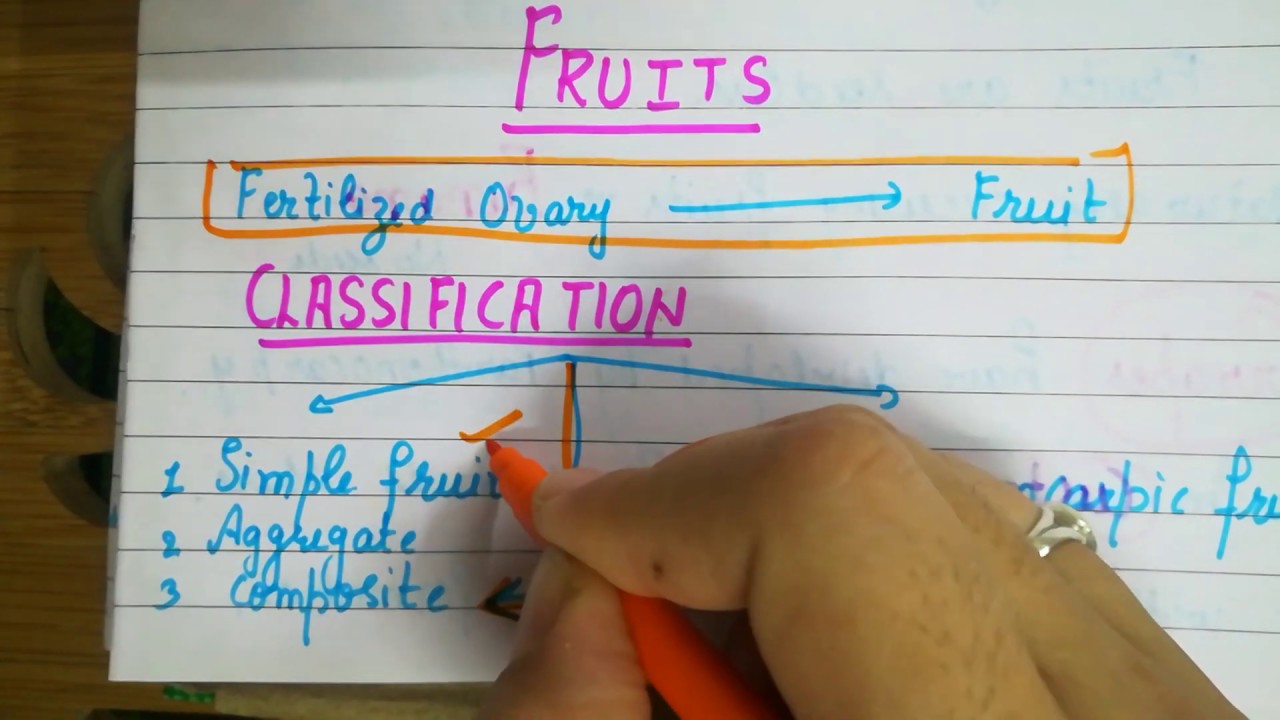 FRUITS
Fertilized Ovary → Fruit
CLASSIFICATION
1 Simple
2 Aggregate
3 Composite